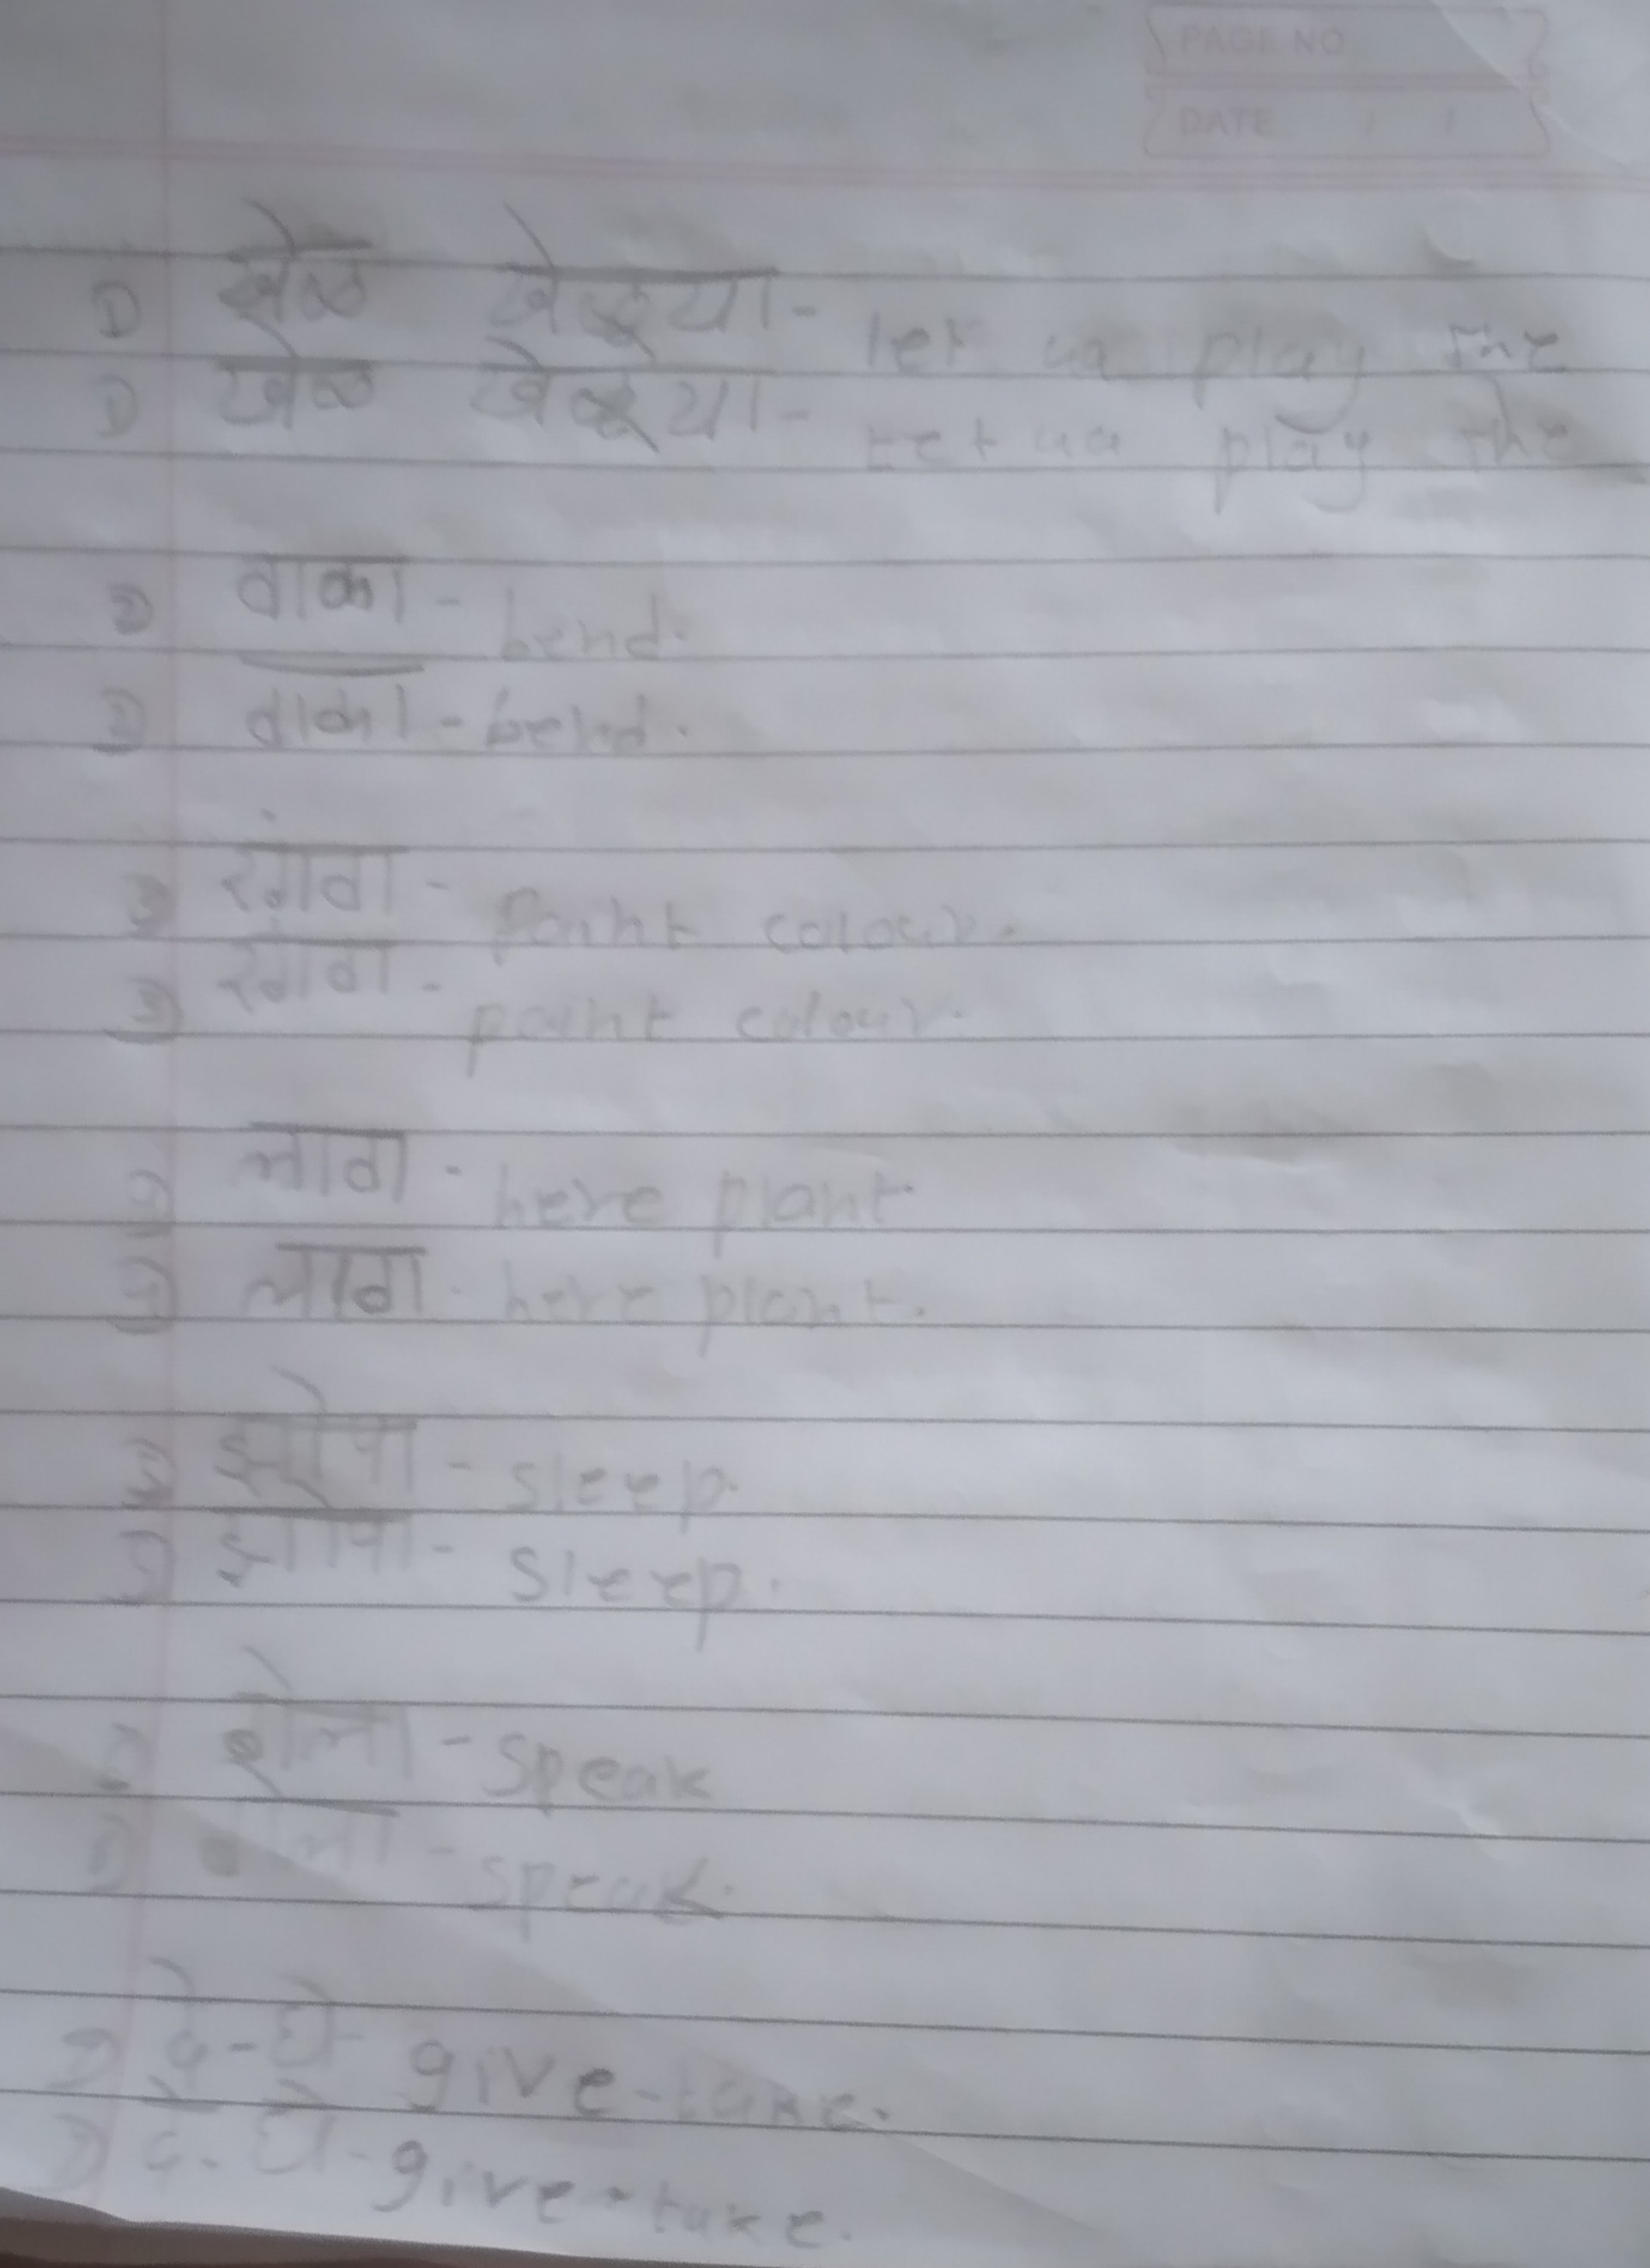 PAGE NO
DATE / /
① खेळ खेळूया - let us play the
① खेळ खेळूया - let us play the
② वाका - bend.
② वाका - bend.
③ रंगवा - paint colour.
③ रंगवा - paint colour.
लावा - here plant.
लावा - here plant.
झोपा - sleep.
झोपा - sleep.
बोला - speak
- speak.
दे - घे - give - take.
दे - घे - give - take.